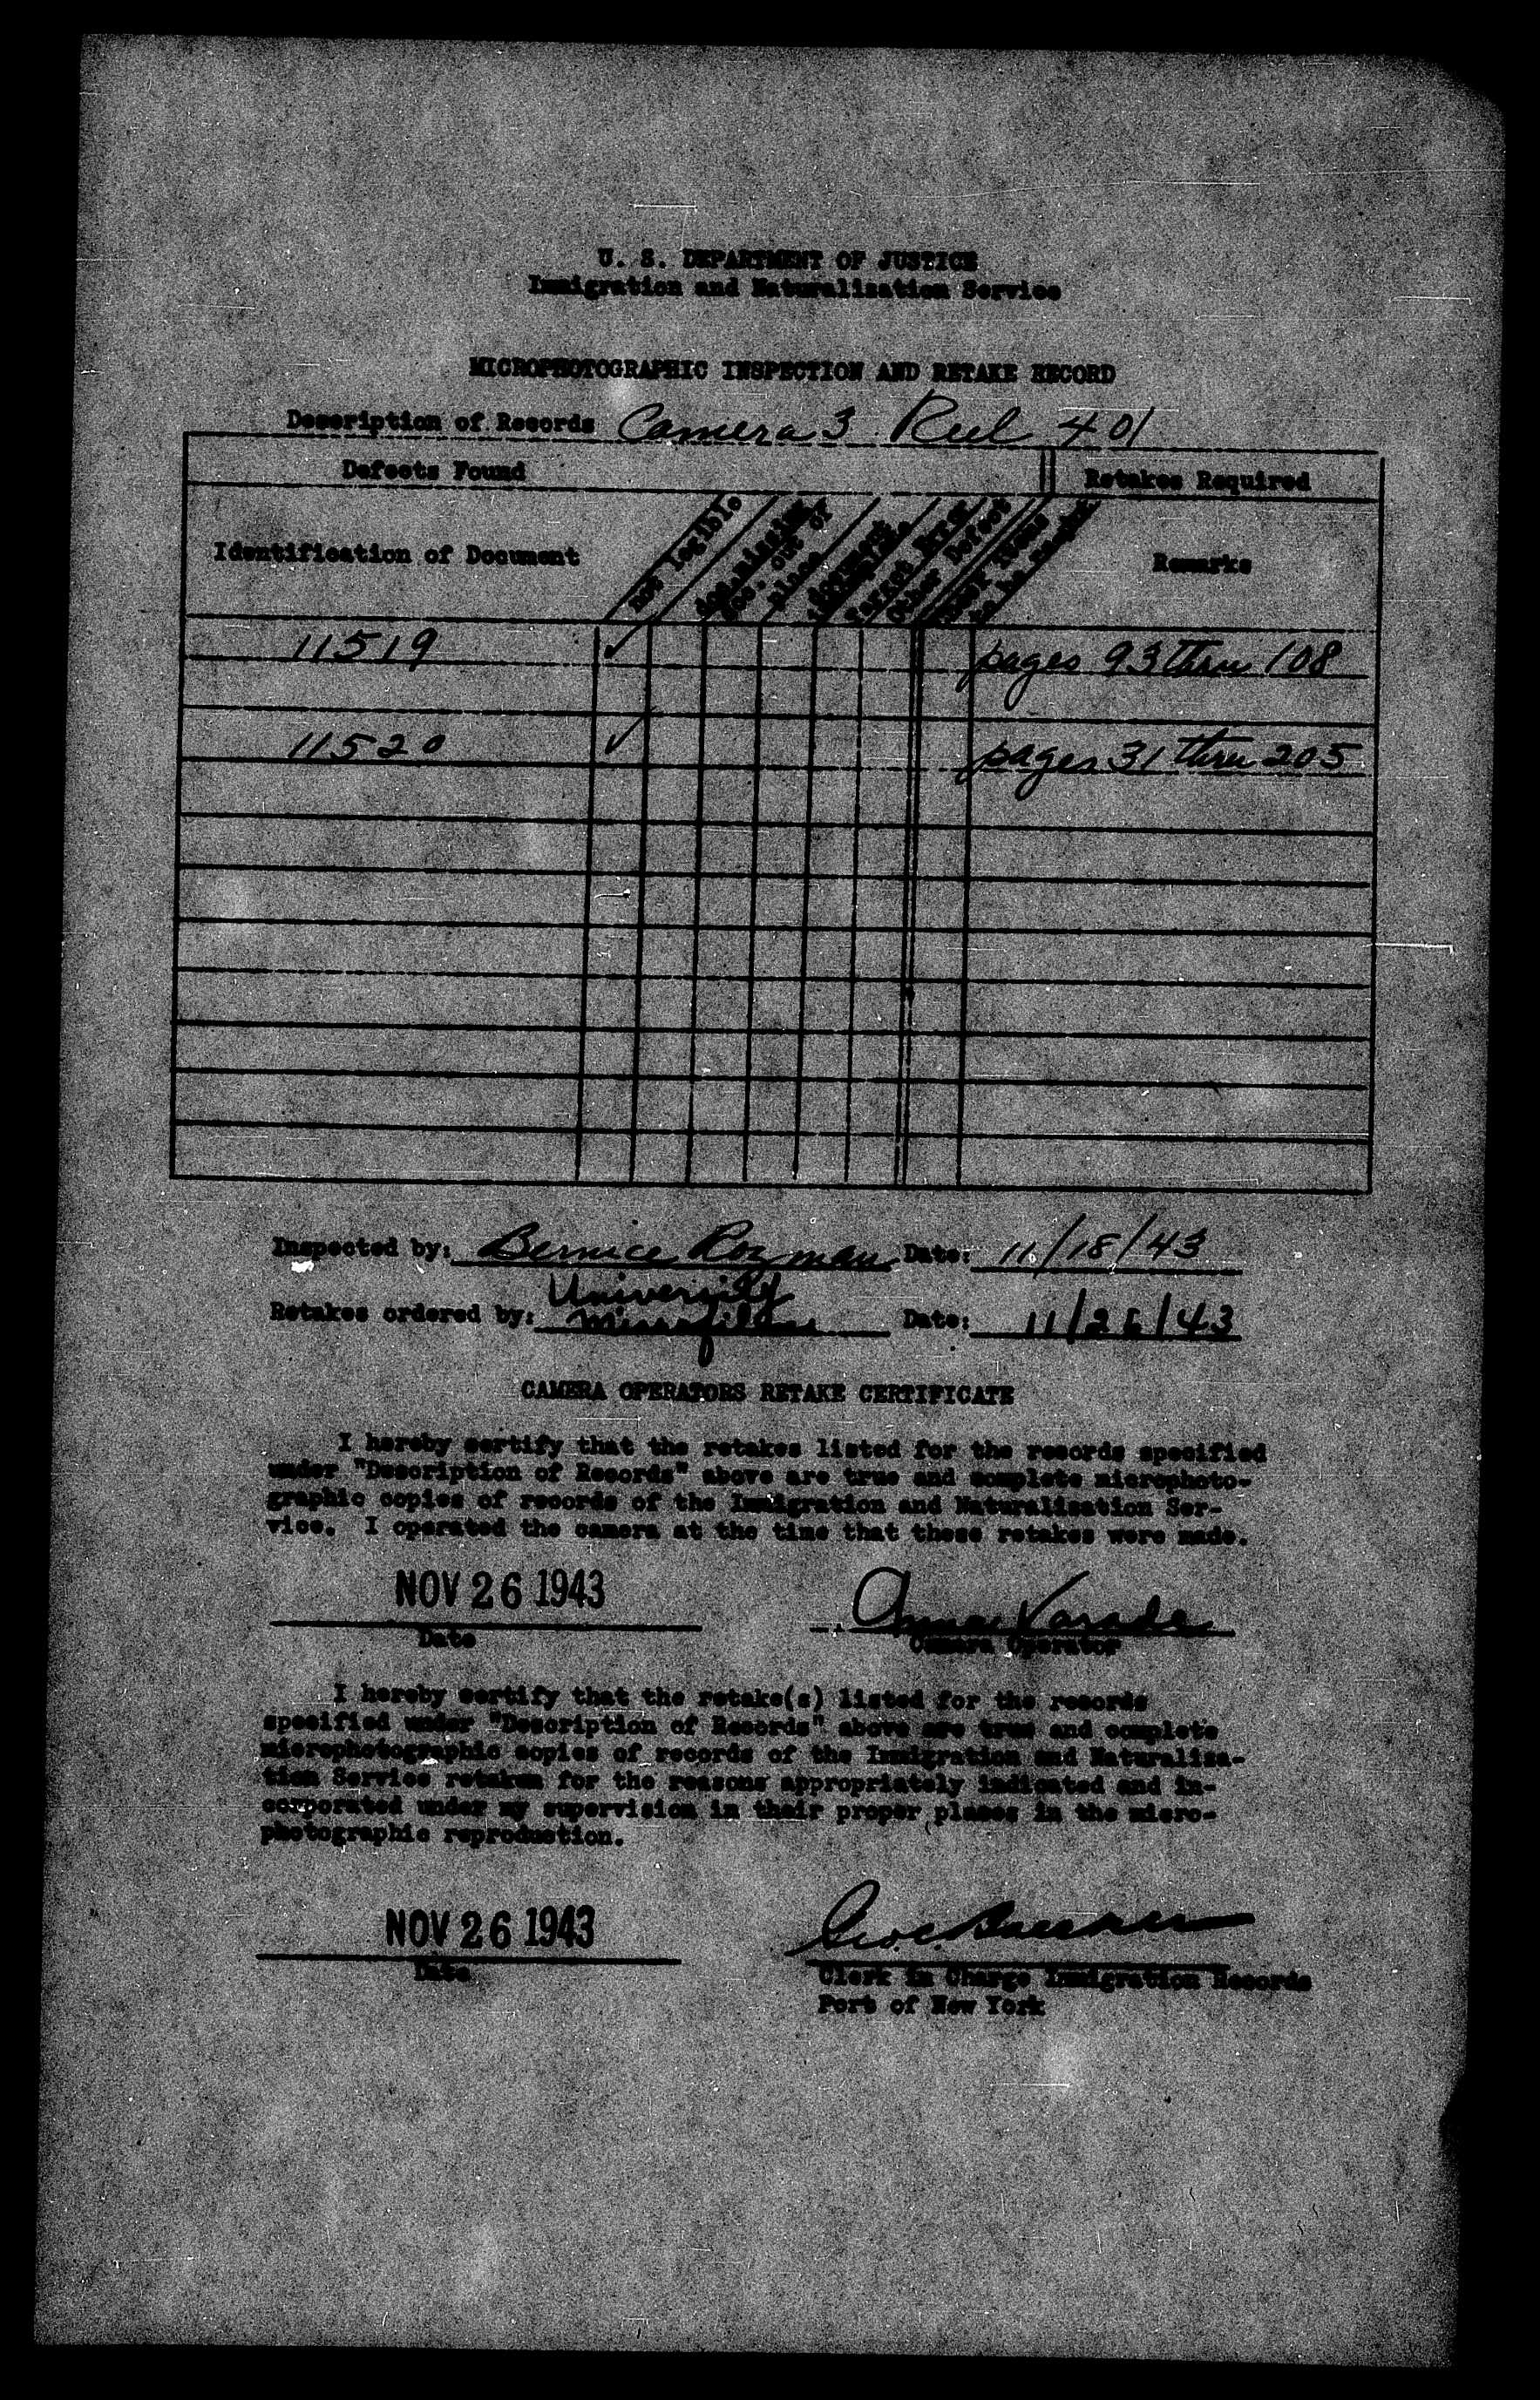 U. S. DEPARTMENT OF JUSTICE
Immigration and Naturalization Service
MICROPHOTOGRAPHIC INSPECTION AND RETAKE RECORD
Description of Records Camera 3 Reel 401
Defects Found Retakes Required
Identification of Document not legible Remarks
11519 ✓ pages 93 thru 108
11520 ✓ pages 31 thru 205
Inspected by: Bernice Rozman Date: 11/18/43
University
Retakes ordered by: Microfilms Date: 11/26/43
CAMERA OPERATORS RETAKE CERTIFICATE
I hereby certify that the retakes listed for the records specified
under "Description of Records" above are true and complete microphoto-
graphic copies of records of the Immigration and Naturalization Ser-
vice. I operated the camera at the time that these retakes were made.
NOV 26 1943 Anna
Date Camera Operator
I hereby certify that the retake(s) listed for the records
specified under "Description of Records" above are true and complete
microphotographic copies of records of the Immigration and Naturaliza-
tion Service retaken for the reasons appropriately indicated and in-
corporated under my supervision in their proper places in the micro-
photographic reproduction.
NOV 26 1943
Date Clerk in Charge Immigration Records
Port of New York